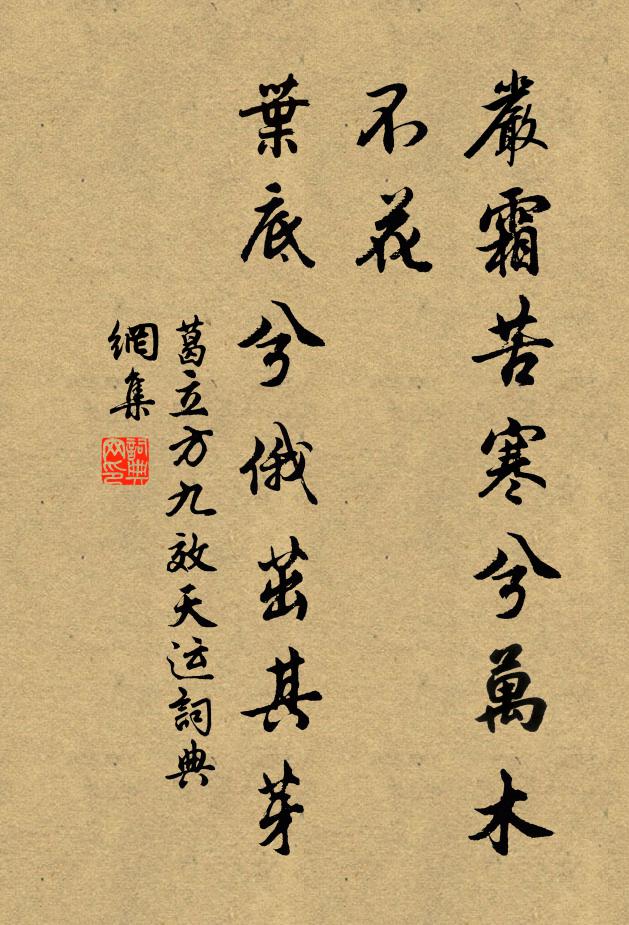 嚴霜苦寒兮萬木
不花
葉底兮俄茁其芽
葛立方九效天运詞典
網集
詞典
网印